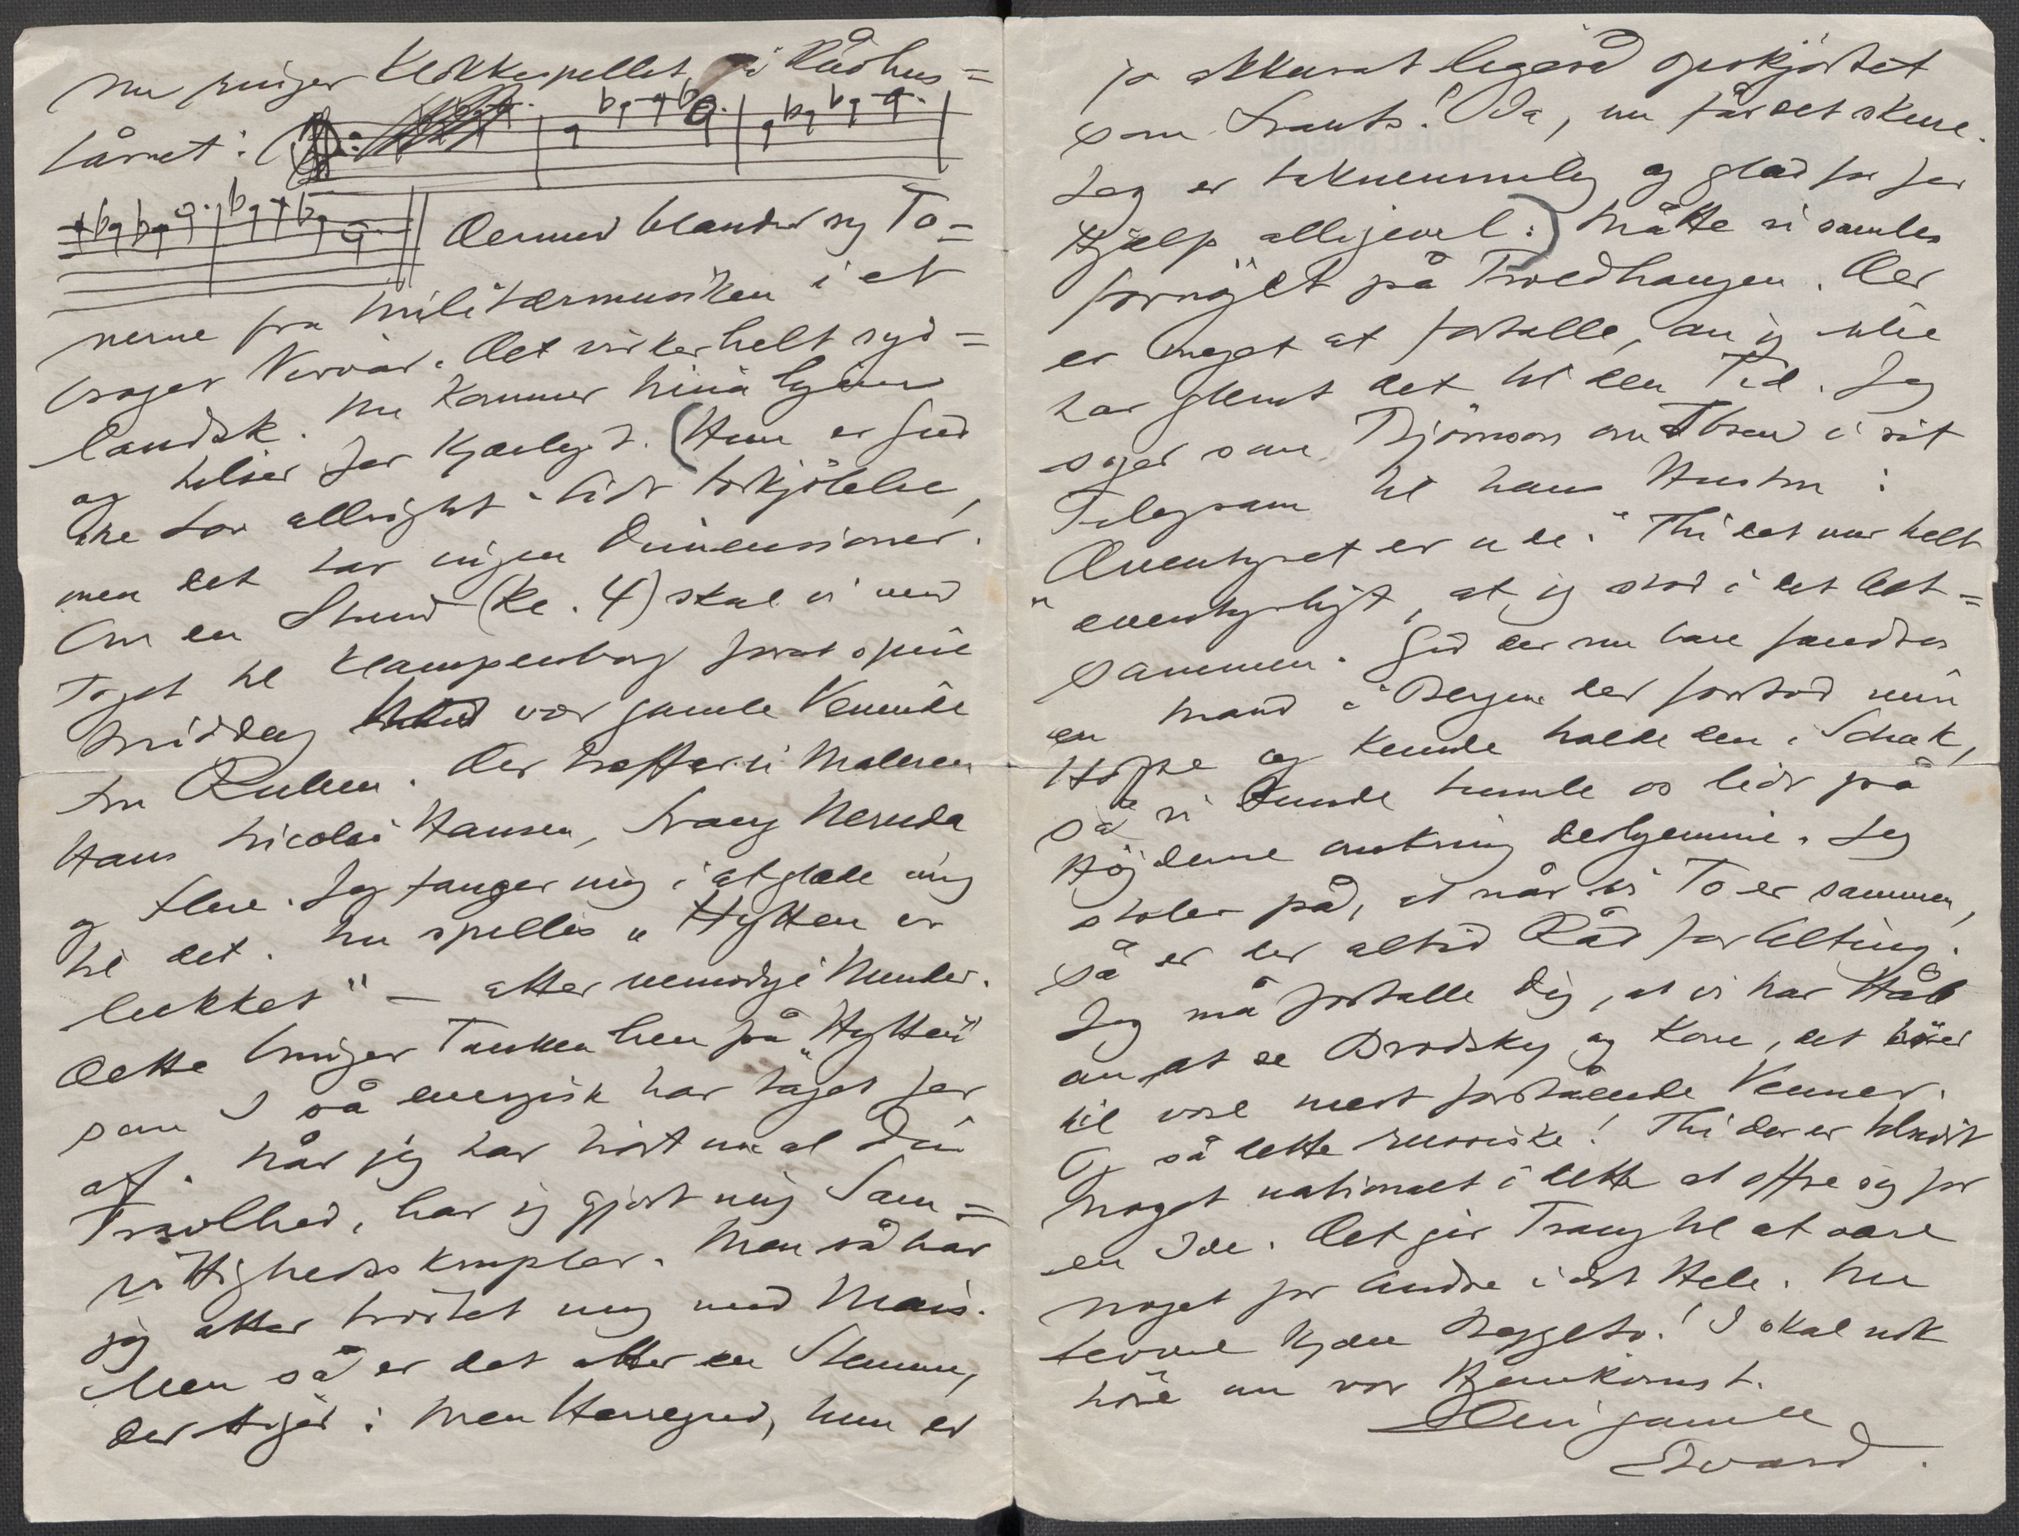 Nu ringer Klokkespillet i Rådhus=
tårnet:
Dermed blander sig To=
nerne fra Militærmusiken i et
broget Virvar. Det virker helt syd=
landsk. Nu kommer Nina hjem
og hilser Jer kjærligt. (Hun er Gud
ske Lov allright. Lidt Forkjölelse,
men det har ingen Dimensioner.
Om en Stund (Kl. 4) skal vi med
Toget til Klampenborg for at spise
Middag hos vor gamle Veninde
Fru Ruben. Der træffer vi Maleren
Hans Nicolai Hansen, Franz Neruda
og Flere. Jeg fanger mig i at glæde mig
til det. Nu spilles „Hytten er
lukket" — atter vemodige Minder.
Dette bringer Tanken hen på „Hytten"
som I så energisk har taget Jer
af. Når jeg har hört om al Din
Travlhed, har jeg gjort mig Sam=
vittighedsskrupler. Men så har
jeg atter tröstet mig med Marie.
Men så er det atter en Stemme,
der siger: Men Herregud, hun er
jo akkurat ligeså opskjörtet
som Frants! Ja, nu får det skure.
Jeg er taknemmelig og glad for Jer
Hjælp alligevel:) Måtte vi samles
fornöjet på Troldhaugen. Der
er meget at fortælle, om jeg ikke
har glemt det til den Tid. Jeg
siger som Björnson om Ibsen i sit
Telegram til hans Hustru:
„Æventyret er ude." Thi det var helt
æventyrligt, at jeg stod i det Alt=
sammen. Gid der nu bare fandtes
en Mand i Bergen der forstod min
Hoste og kunde holde den i Schak,
så vi kunde tumle os lidt på
Höjderne omkring derhjemme. Jeg
stoler på, at når vi To er sammen,
så er der altid Råd for Alting.
Jeg må fortælle Dig, at vi har Håb
om at se Brodsky og Kone, det hörer
til vore mest forstående Venner.
Og så dette russiske! Thi der er
Noget nationalt i dette at offre sig for
en Ide. Det gir Trang til at være
noget for Andre i det Hele. Nu
Levvel kjære Beggeto! I skal nok
höre om vor Hjemkomst.
Din gamle
Edvard.